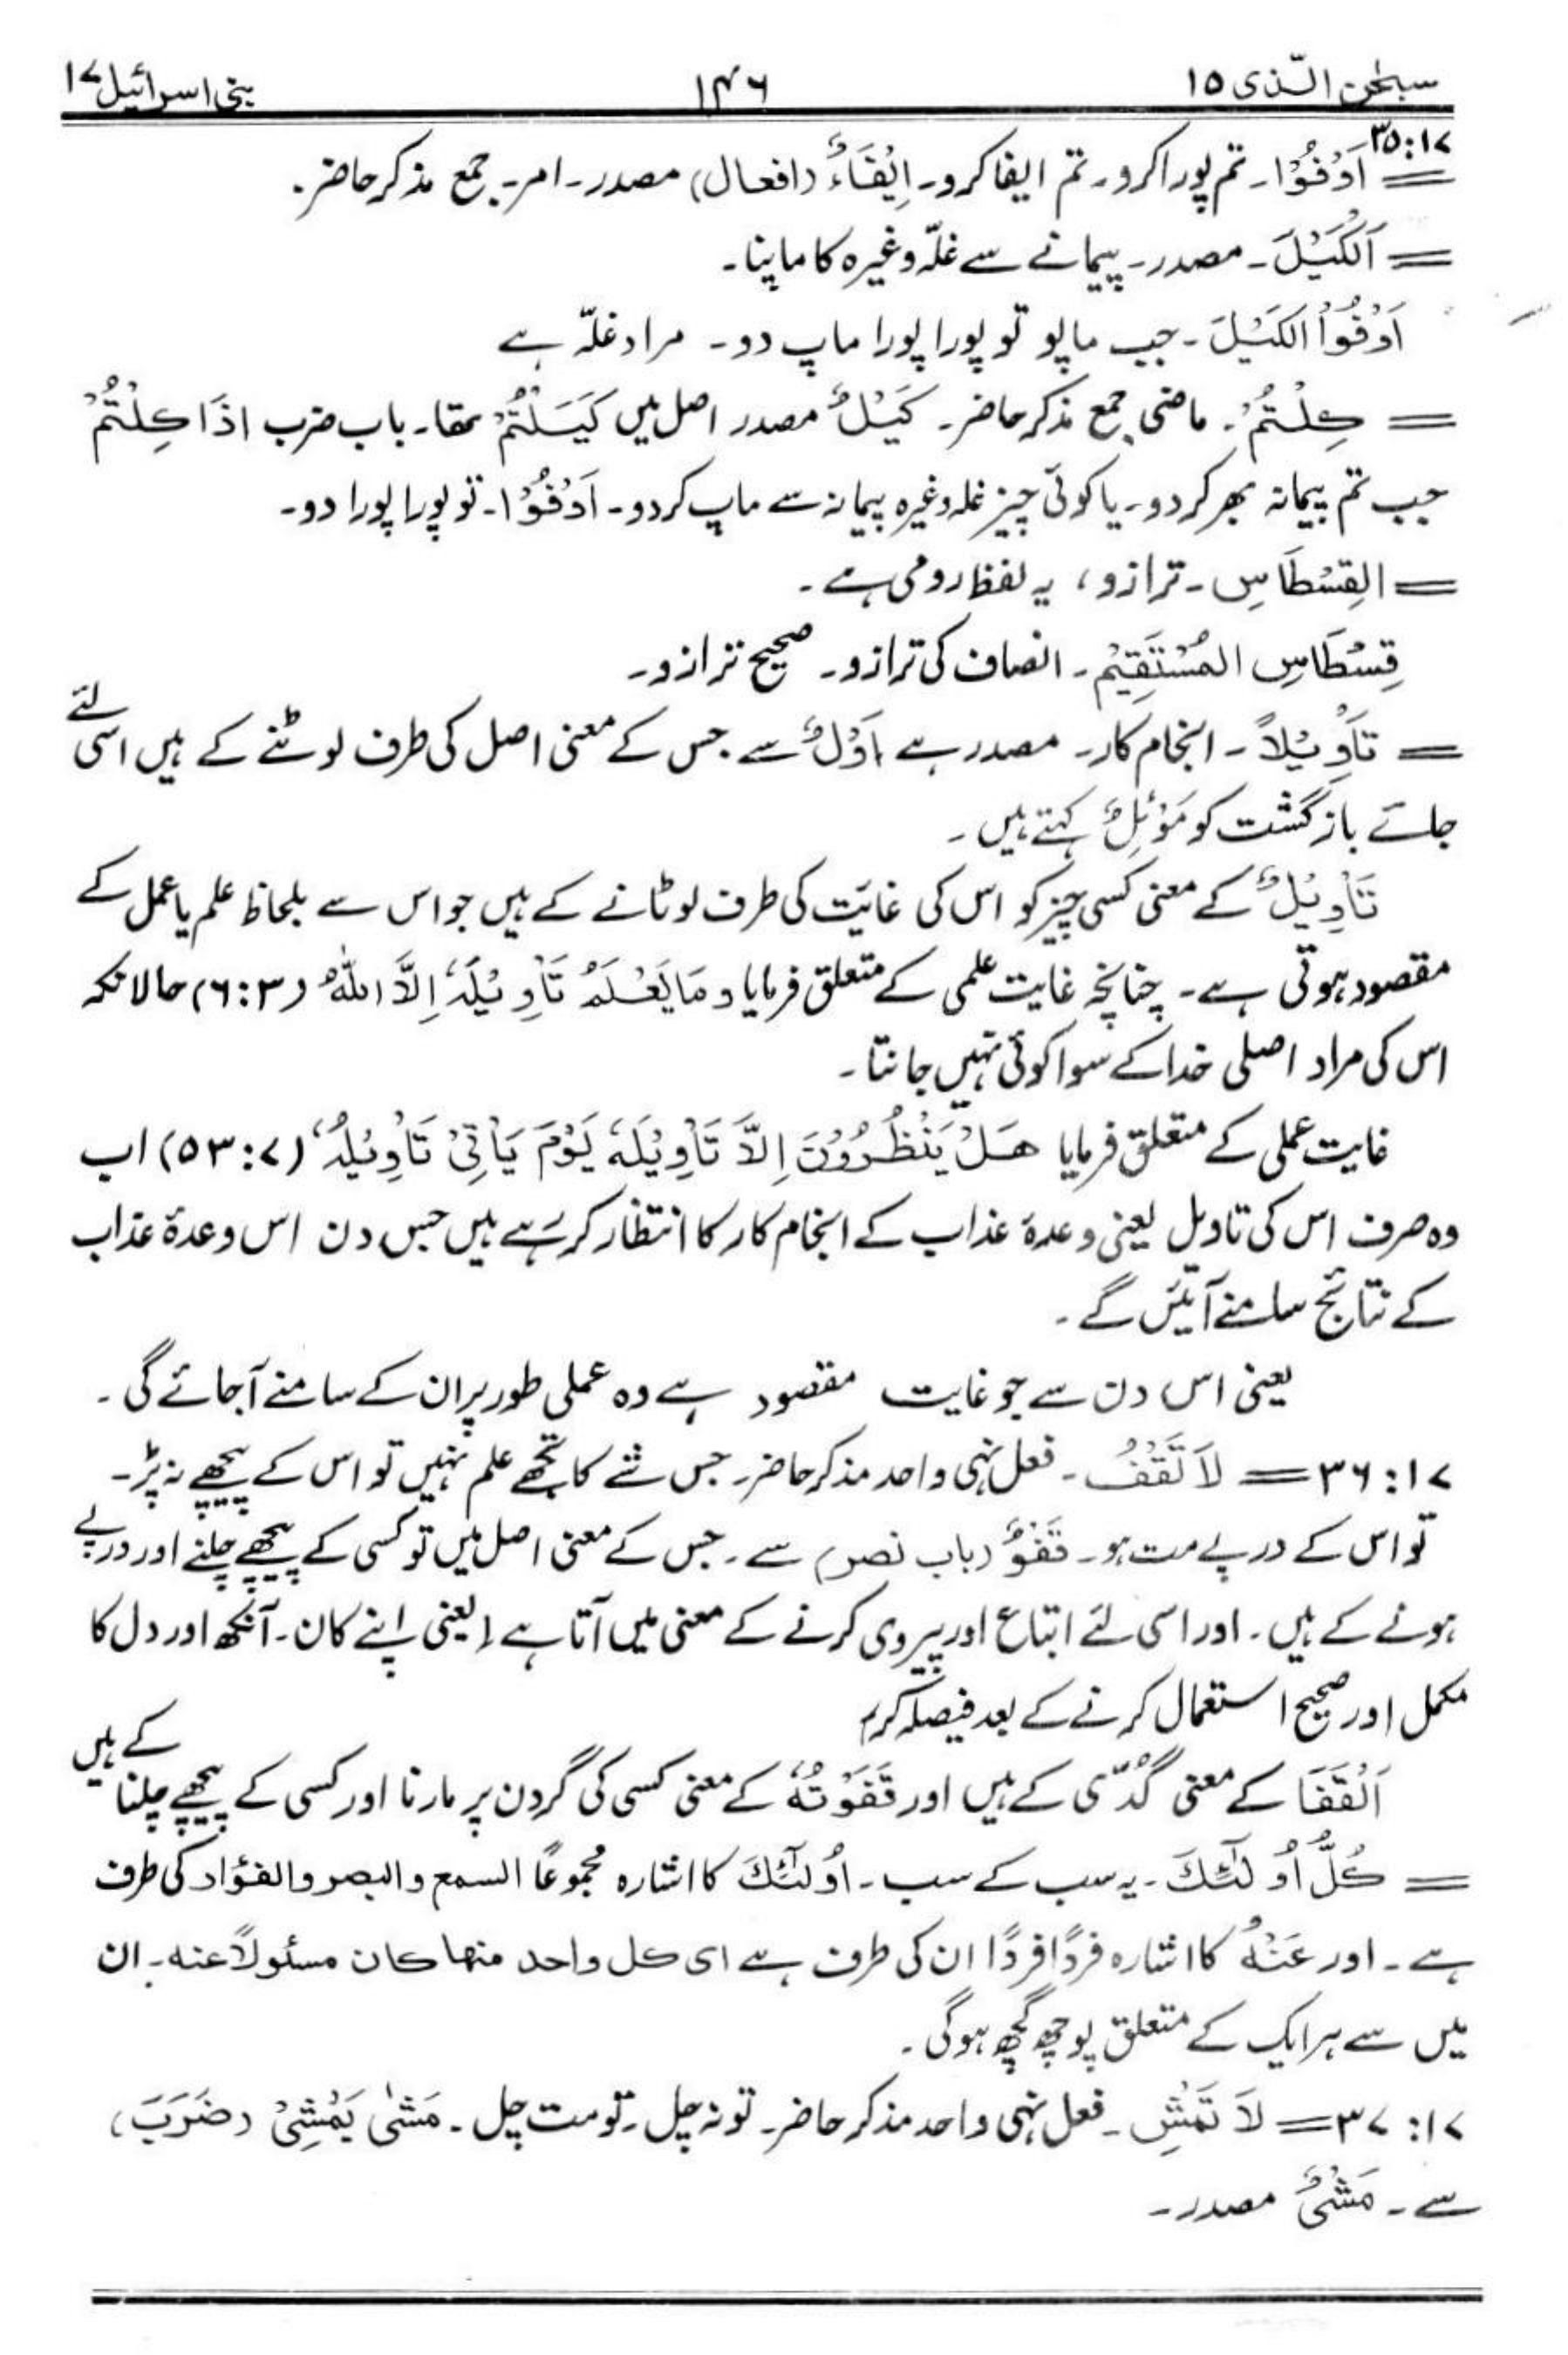 سبحٰن الّذی ۱۵ ۱۴۶ بنی اسرائیل ۱۷
۱۷:۳۵
= اَوْفُوْا۔ تم پورا کرو۔ تم ایفا کرو۔ اِیْفَاءٌ (افعال) مصدر۔ امر۔ جمع مذکر حاضر۔
= اَلْکَیْلَ۔ مصدر۔ پیمانے سے غلّہ وغیرہ کا ماپنا۔
اَوْفُوا الکَیْلَ۔ جب ماپو تو پورا پورا ماپ دو۔ مراد غلّہ ہے
= کِلْتُمْ۔ ماضی جمع مذکر حاضر۔ کَیْلٌ مصدر اصل میں کَیَسَلْتُمْ تھا۔ باب ضرب اذَا کِلْتُمْ
جب تم پیمانہ بھر کر دو۔ یا کوئی چیز غلہ وغیرہ پیمانہ سے ماپ کر دو۔ اَوْفُوْا۔ تو پورا پورا دو۔
= القِسْطَاسِ۔ ترازو، یہ لفظ رومی ہے۔
قِسْطَاسِ المُسْتَقِیْم۔ انصاف کی ترازو۔ صحیح ترازو۔
= تَاْوِیْلاً۔ انجام کار۔ مصدر ہے اَوْلٌ سے جس کے معنی اصل کی طرف لوٹنے کے ہیں اسی لئے
جائے بازگشت کو مَوْئِلٌ کہتے ہیں۔
تَاْوِیْلٌ کے معنی کسی چیز کو اس کی غایَت کی طرف لوٹانے کے ہیں جو اس سے بلحاظ علم یا عمل کے
مقصود ہوتی ہے۔ چنانچہ غایت علمی کے متعلق فرمایا وَمَا یَعْلَمُ تَاْوِیْلَہٗ اِلاَّ اللّٰہُ (۳:۶) حالانکہ
اس کی مراد اصلی خدا کے سوا کوئی نہیں جانتا۔
غایت عملی کے متعلق فرمایا ھَلْ یَنْظُرُوْنَ اِلاَّ تَاْوِیْلَہٗ یَوْمَ یَاْتِیْ تَاْوِیْلُہٗ (۷:۵۳) اب
وہ صرف اس کی تاویل یعنی وعدۂ عذاب کے انجام کار کا انتظار کر رہے ہیں جس دن اس وعدۂ عذاب
کے نتائج سامنے آئیں گے۔
یعنی اس دن سے جو غایت مقصود ہے وہ عملی طور پر ان کے سامنے آ جائے گی۔
۱۷:۳۶ = لَا تَقْفُ۔ فعل نہی واحد مذکر حاضر۔ جس شے کا تجھے علم نہیں تو اس کے پیچھے نہ پڑ۔
تو اس کے درپے مت ہو۔ قَفْوٌ (باب نصر) سے۔ جس کے معنی اصل میں تو کسی کے پیچھے چلنے اور درپے
ہونے کے ہیں۔ اور اسی لئے اتباع اور پیروی کرنے کے معنی میں آتا ہے (یعنی اپنے کان۔ آنکھ اور دل کا
مکمل اور صحیح استعمال کرنے کے بعد فیصلہ کر)
اَلْقَفَا کے معنی گُدّی کے ہیں اور قَفَوْتُہٗ کے معنی کسی کی گردن پر مارنا اور کسی کے پیچھے چلنا کے ہیں
= کُلُّ اُولٰٓئِكَ۔ یہ سب کے سب۔ اُولٰٓئِكَ کا اشارہ مجموعًا السمع والبصر والفؤاد کی طرف
ہے۔ اور عَنْہُ کا اشارہ فردًا فردًا ان کی طرف ہے ای کل واحد منھا کان مسئولاً عنہ۔ ان
میں سے ہر ایک کے متعلق پوچھ گچھ ہوگی۔
۱۷:۳۷ = لَا تَمْشِ۔ فعل نہی واحد مذکر حاضر۔ تو نہ چل۔ تو مت چل۔ مَشٰی یَمْشِیْ (ضَرَبَ)
سے۔ مَشْیٌ مصدر۔